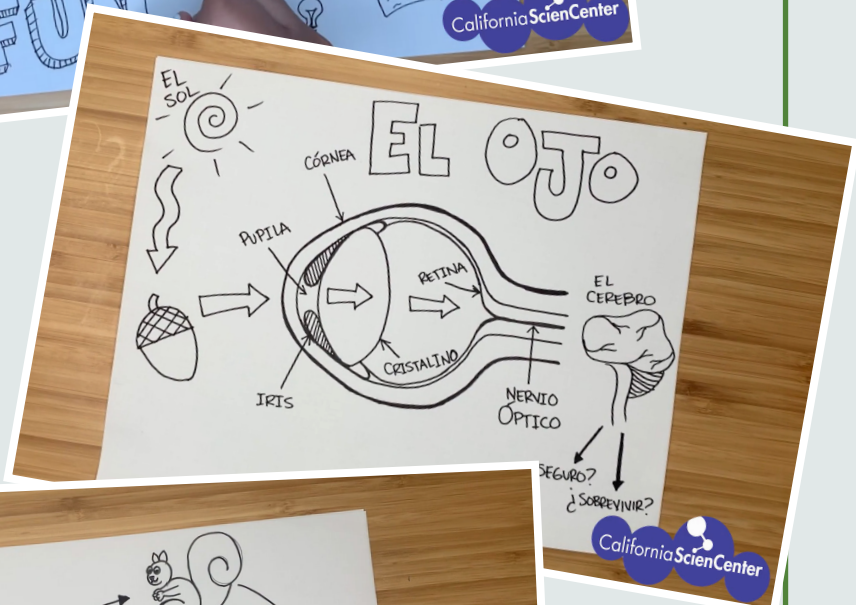 FUN
California ScienCenter
EL
SOL
EL OJO
CÓRNEA
PUPILA
RETINA
EL
CEREBRO
CRISTALINO
IRIS
NERVIO
ÓPTICO
SEGURO?
¿SOBREVIVIR?
California ScienCenter